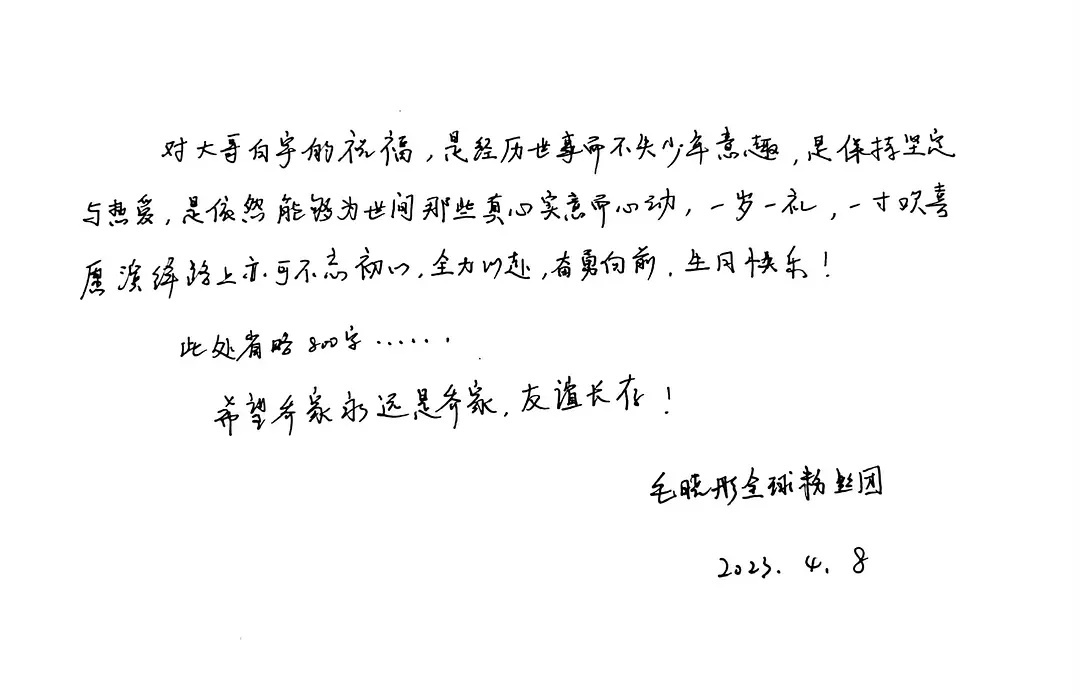 对大哥白宇的祝福,是经历世事而不失少年意趣,是保持坚定
与热爱,是依然能够为世间那些真心实意而心动,一岁一礼,一寸欢喜
愿演绎路上亦可不忘初心,全力以赴,奋勇向前,生日快乐!
此处省略800字······
希望乔家永远是乔家,友谊长存!
毛晓彤全球粉丝团
2023.4.8